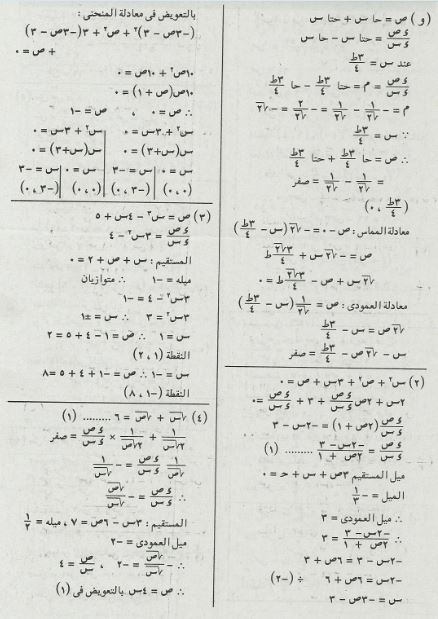 (و) ص = حا س + حتا س
ءص/ءس = حتا س − حا س
عند س = ٣ط/٤
ءص/ءس = م = حتا ٣ط/٤ − حا ٣ط/٤
م = − ١/√٢ − ١/√٢ = − ٢/√٢ = − √٢
∵ س = ٣ط/٤
∴ ص = حا ٣ط/٤ + حتا ٣ط/٤
= ١/√٢ − ١/√٢ = صفر
(٣ط/٤ ، ٠)
معادلة المماس : ص − ٠ = − √٢ (س − ٣ط/٤)
ص = − √٢ س + ٣√٢/٤ ط
√٢ س + ص − ٣√٢/٤ ط = ٠
معادلة العمودى : ص = ١/√٢ (س − ٣ط/٤)
√٢ ص = س − ٣ط/٤
س − √٢ ص − ٣ط/٤ = صفر
(٢) س٢ + ص٢ + ٣س + ص = ٠
٢س + ٢ص ءص/ءس + ٣ + ءص/ءس = ٠
ءص/ءس (٢ص + ١) = −٢س − ٣
ءص/ءس = −٢س − ٣ / ٢ص + ١ ......... (١)
ميل المستقيم ٣ص + س + حـ = ٠
الميل = − ١/٣
∴ ميل العمودى = ٣
∴ −٢س − ٣ / ٢ص + ١ = ٣
−٢س − ٣ = ٦ص + ٣
−٢س = ٦ص + ٦ ÷ (−٢)
س = −٣ص − ٣
بالتعويض فى معادلة المنحنى :
(−٣ص − ٣)٢ + ص٢ + ٣(−٣ص − ٣)
+ ص = ٠
١٠ص٢ + ١٠ص = ٠
١٠ص(ص + ١) = ٠
∴ ص = ٠ ، ص = −١
س٢ + ٣س = ٠ س٢ + ٣س = ٠
س(س+٣) = ٠ س(س+٣) = ٠
س = ٠ س = −٣ س = ٠ س = −٣
(٠ ، ٠) (−٣ ، ٠) (٠ ، ٠) (−٣ ، ٠)
(٣) ص = س٣ − ٤س + ٥
ءص/ءس = ٣س٢ − ٤
المستقيم : س + ص + ٢ = ٠
ميله = −١ ∴ متوازيان
٣س٢ − ٤ = −١
٣س٢ = ٣ ∴ س = ±١
س = ١ ∴ ص = ١ − ٤ + ٥ = ٢
النقطة (١ ، ٢)
س = −١ ∴ ص = −١ + ٤ + ٥ = ٨
النقطة (−١ ، ٨)
(٤) √س + √ص = ٦ ......... (١)
١/٢√س + ١/٢√ص × ءص/ءس = صفر
١/√ص ءص/ءس = − ١/√س
∴ ءص/ءس = − √ص/√س
المستقيم : ٣س − ٦ص = ٧ ، ميله = ١/٢
ميل العمودى = −٢
∴ − √ص/√س = −٢ ، ص/س = ٤
∴ ص = ٤س بالتعويض فى (١)